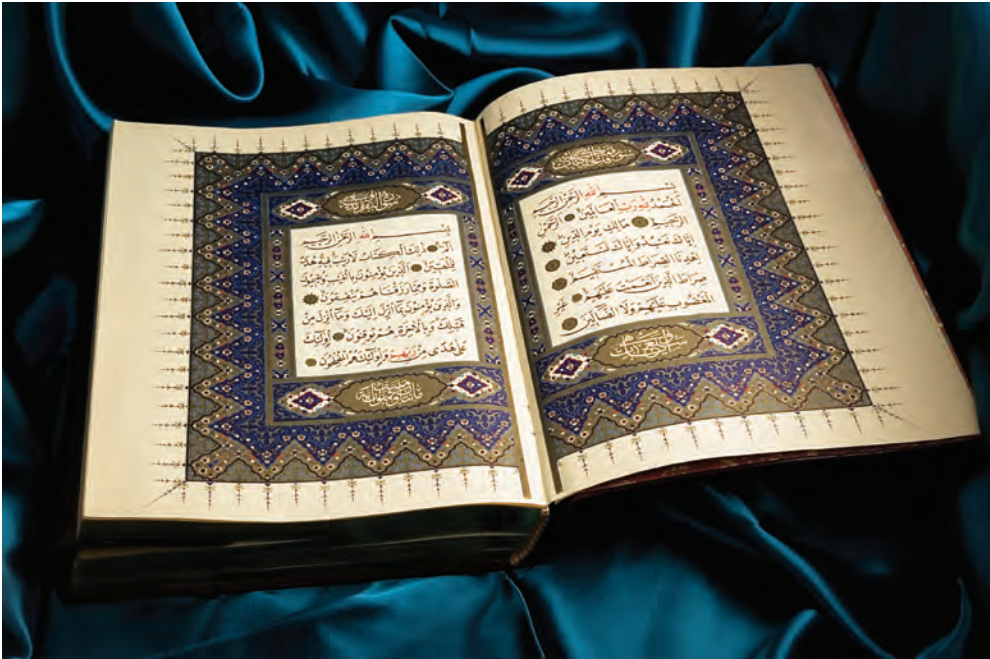 بِسْمِ اللهِ الرَّحْمٰنِ الرَّحِيمِ
اَلْحَمْدُ لِلّٰهِ رَبِّ الْعَالَمِينَ اَلرَّحْمٰنِ
الرَّحِيمِ مَالِكِ يَوْمِ الدِّينِ
اِيَّاكَ نَعْبُدُ وَاِيَّاكَ نَسْتَعِينُ
اِهْدِنَا الصِّرَاطَ الْمُسْتَقِيمَ
صِرَاطَ الَّذِينَ اَنْعَمْتَ عَلَيْهِمْ غَيْرِ
الْمَغْضُوبِ عَلَيْهِمْ وَلَا الضَّالِّينَ
سُورَةُ الْبَقَرَةِ
بِسْمِ اللهِ الرَّحْمٰنِ الرَّحِيمِ
الٓمٓ ذٰلِكَ الْكِتَابُ لَا رَيْبَ فِيهِ هُدًى
لِلْمُتَّقِينَ اَلَّذِينَ يُؤْمِنُونَ بِالْغَيْبِ وَيُقِيمُونَ
الصَّلٰوةَ وَمِمَّا رَزَقْنَاهُمْ يُنْفِقُونَ
وَالَّذِينَ يُؤْمِنُونَ بِمَا اُنْزِلَ اِلَيْكَ وَمَا اُنْزِلَ مِنْ
قَبْلِكَ وَبِالْاٰخِرَةِ هُمْ يُوقِنُونَ اُولٰئِكَ
عَلٰى هُدًى مِنْ رَبِّهِمْ وَاُولٰئِكَ هُمُ الْمُفْلِحُونَ